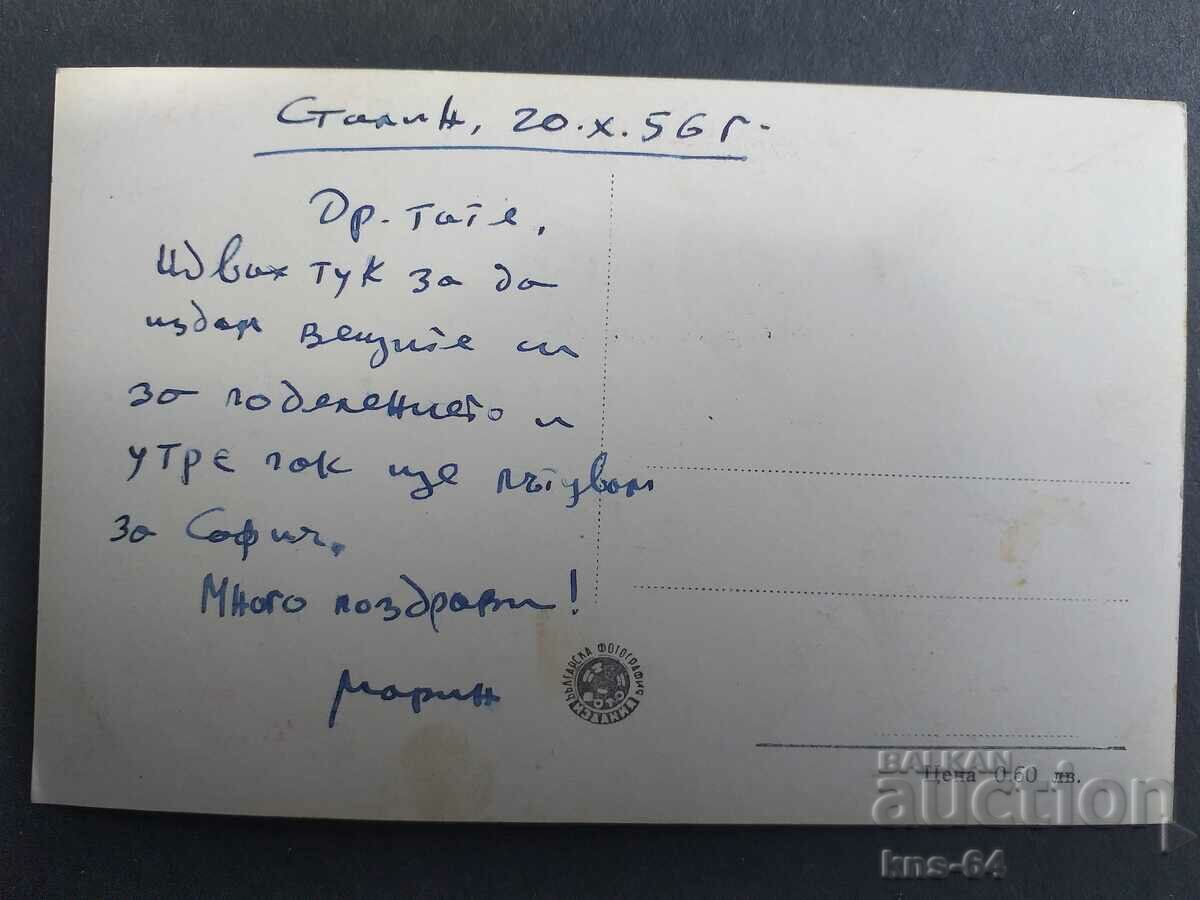 Сталин, 20.X.56 г.
Др. тате,
Идвах тук за да
издам вещите си
за поделението и
утре пак ще пътувам
за София.
Много поздрави!
Марин
БЪЛГАРСКА ФОТОГРАФИЯ
ФОТО
Цена 0.60 лв.
BALKAN
auction
kns-64